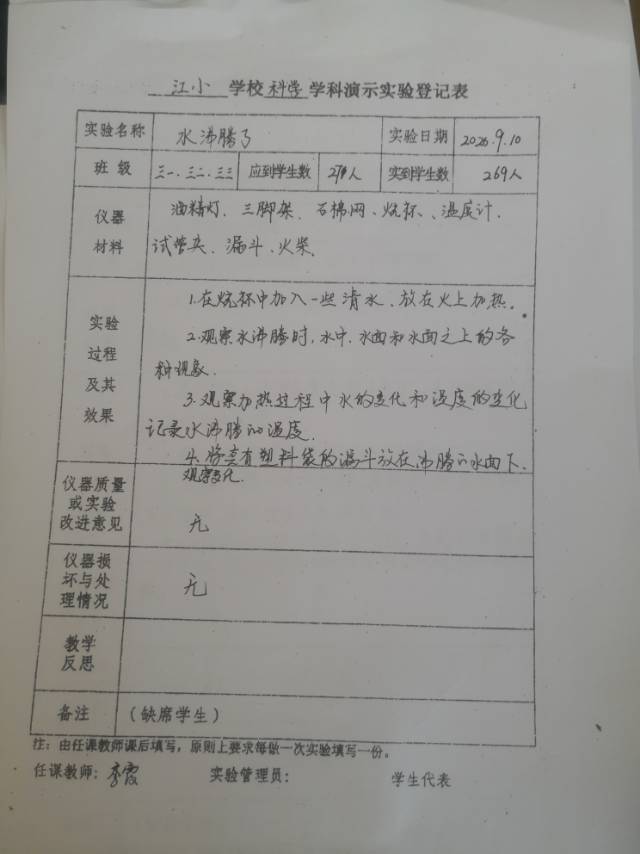 江小 学校 科学 学科演示实验登记表
实验名称 水沸腾了 实验日期 2026.9.10
班级 三一.三二.三三 应到学生数 270人 实到学生数 269人
仪器材料 油精灯、三脚架、石棉网、烧杯、温度计.
试管夹、漏斗、火柴.
实验过程及其效果
1.在烧杯中加入一些清水、放在火上加热.
2.观察水沸腾时,水中、水面和水面之上的各
种现象.
3.观察加热过程中水的变化和温度的变化
记录水沸腾的温度.
4.将套有塑料袋的漏斗放在沸腾的水面下.
观察变化.
仪器质量或实验改进意见 无
仪器损坏与处理情况 无
教学反思
备注 (缺席学生)
注:由任课教师课后填写,原则上要求每做一次实验填写一份。
任课教师:李霞 实验管理员: 学生代表